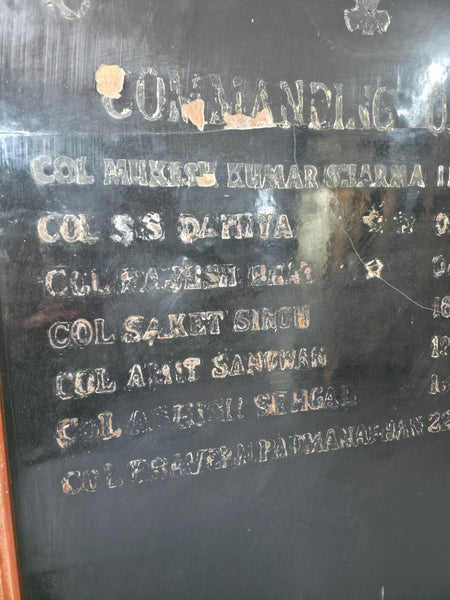 COMMANDING
COL MUKESH KUMAR SHARMA
COL S.S DAHIYA
COL RAJESH BHAT
COL SAKET SINGH
COL AMIT SANGWAN
COL ASHISH SEHGAL
COL PRAVEEN PADMANABHAN 22